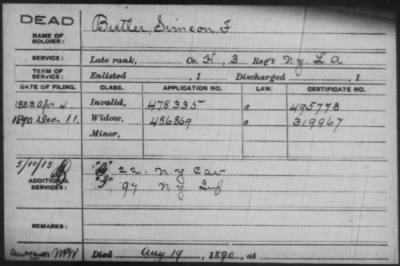 DEAD
NAME OF SOLDIER: Butler, Simeon F
SERVICE: Late rank, Co. H, 3 Reg't N.Y. L A
TERM OF SERVICE: Enlisted , 1 Discharged , 1
DATE OF FILING. CLASS. APPLICATION NO. LAW. CERTIFICATE NO.
1883 Apr. 4 Invalid, 478335 495778
1890 Dec 11. Widow, 486869 319967
Minor,
5/10/15
ADDITIONAL SERVICES: "G" 22. N Y Cav
"I" 97 N Y Inf
REMARKS:
Died Aug 19, 1890, at